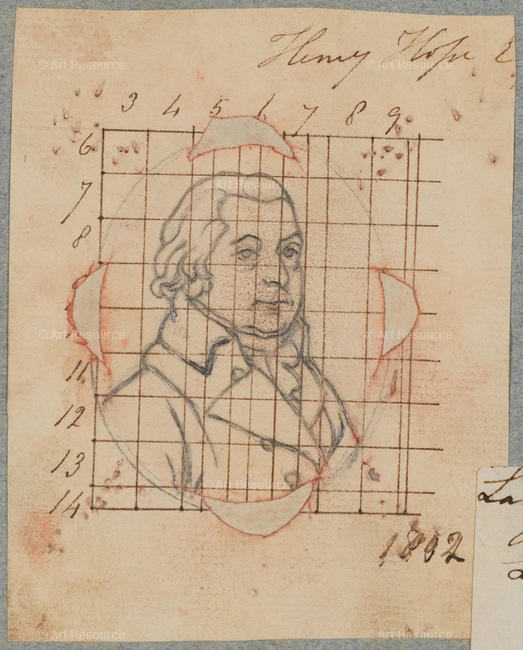 ©Art Resource ©Art Resource
Henry Hope
3 4 5 6 7 8 9
6
7
8
11
12
13
14
1802
La
©Art Resource
©Art Resource ©Art Resource
©Art Resource
©Art Resource ©Art Resource